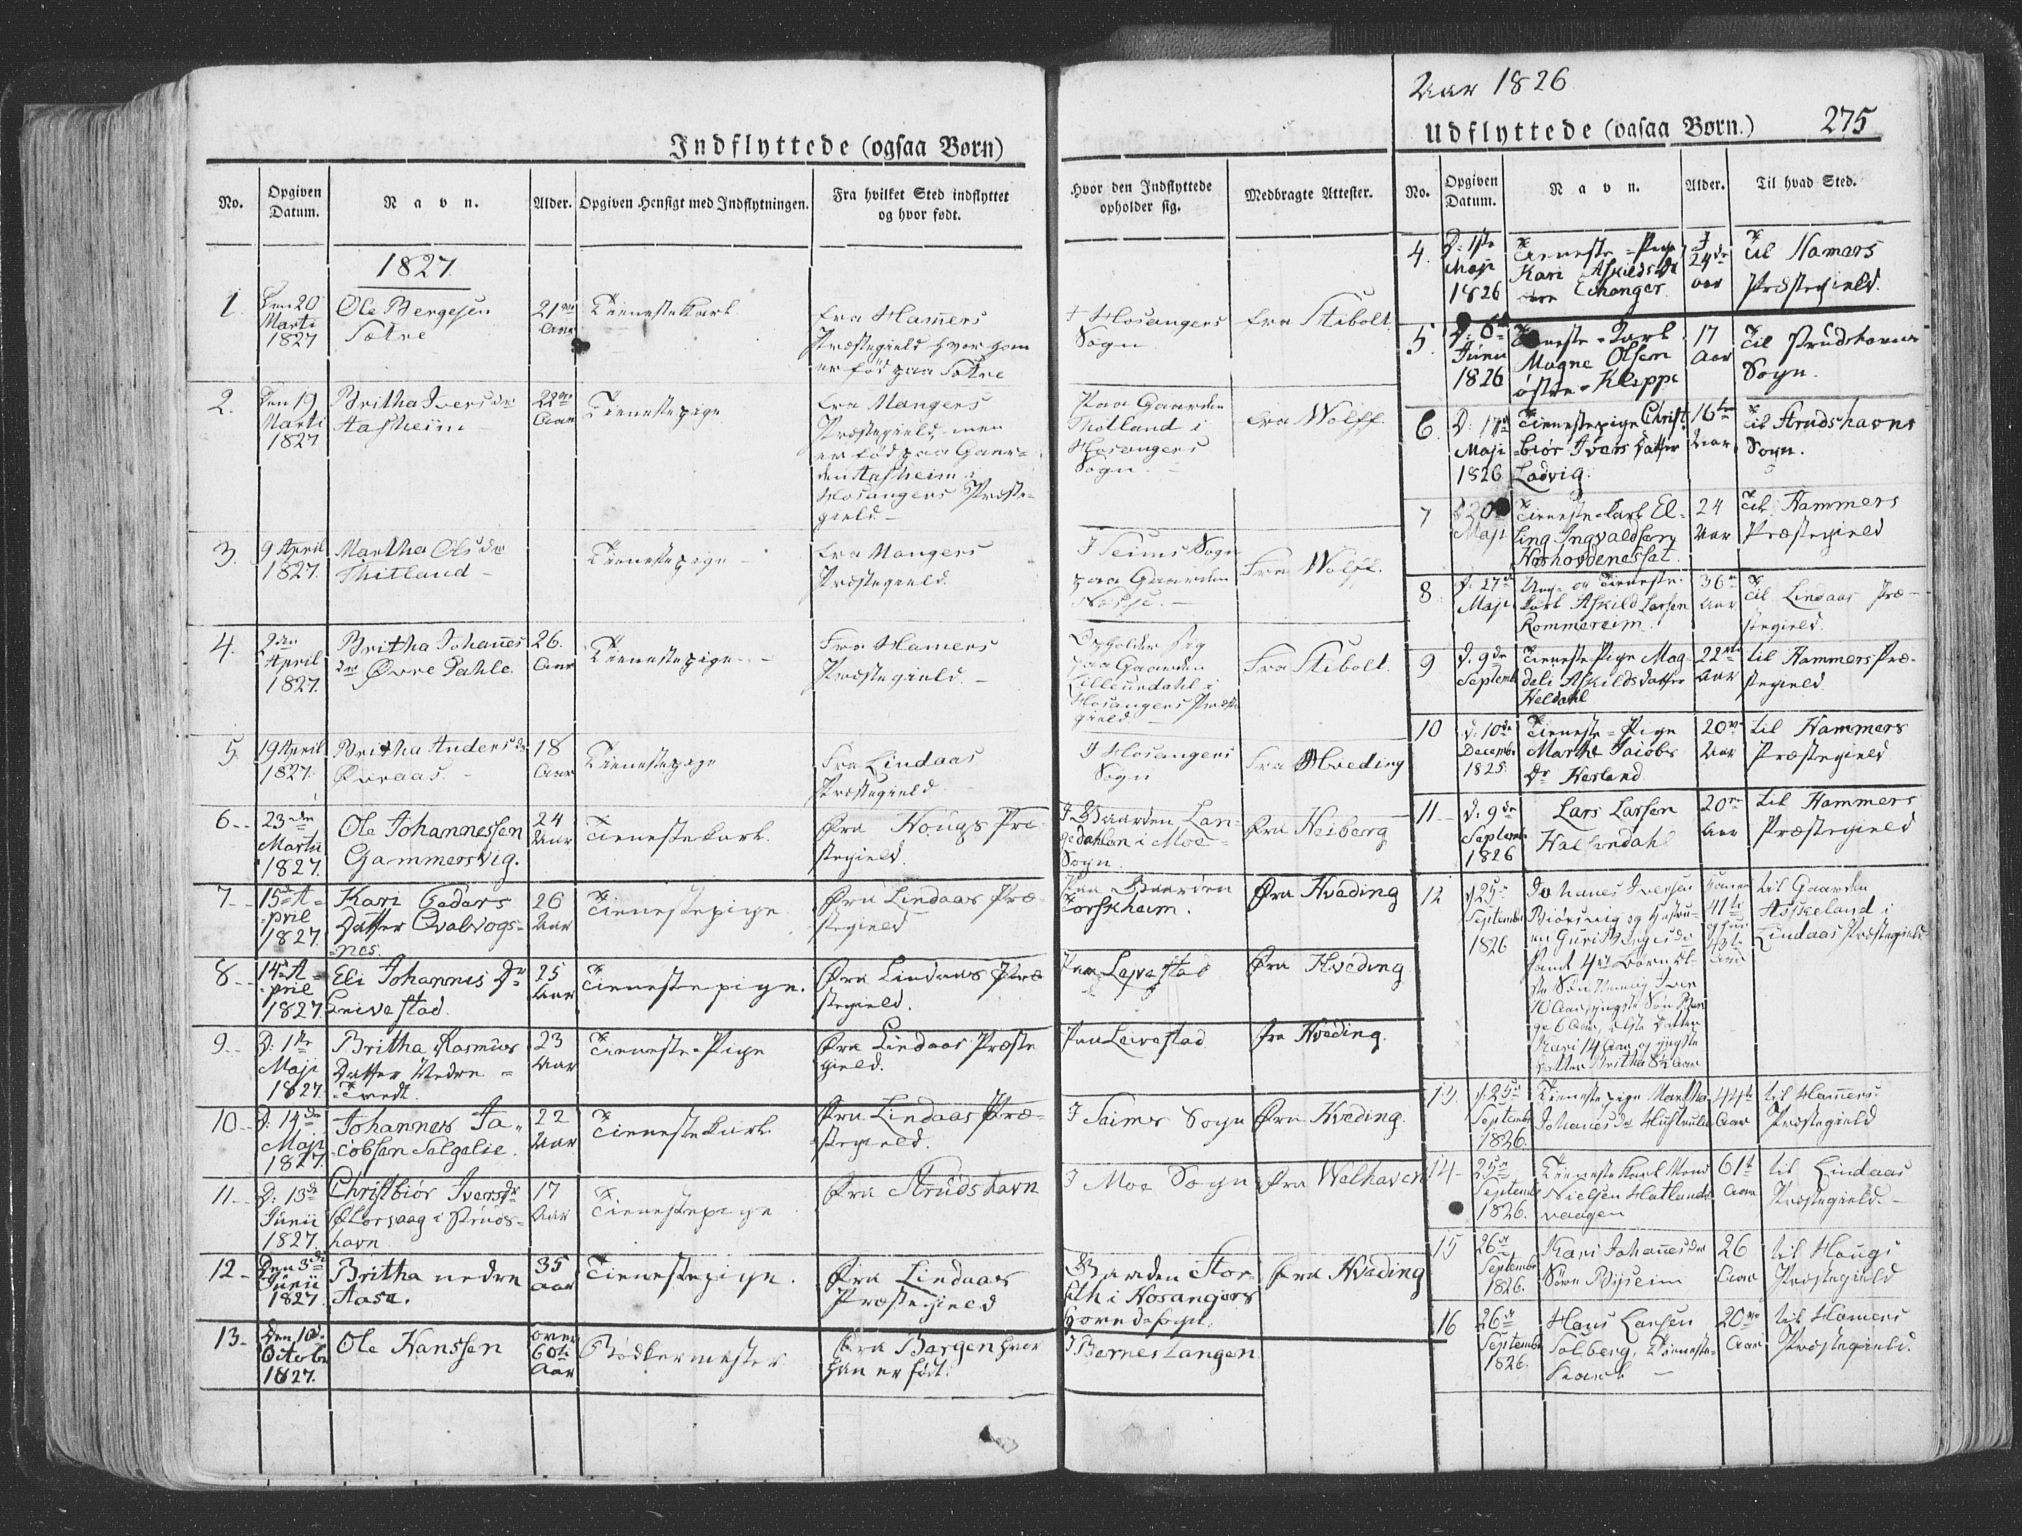 Indflyttede (ogsaa Børn)
No.
Opgiven
Datum.
Navn.
Alder.
Opgiven Hensigt med Indflytningen.
Fra hvilket Sted indflyttet
og hvor født.
Hvor den Indflyttede
opholder sig.
Medbragte Attester.
1827.
1.
Den 20
Marti
1827
Ole Bergesen
Sætre
21
Aar
Tienestekarl
fra Hamers
Præstegield hvor han
er fød paa Sætre
I Hosangers
Sogn
fra Stibolt
2.
Den 19
Marti
1827
Britha Iversdr
Aasheim
22
Aar
Tienestepige
fra Mangers
Præstegield, men
er fød paa Gaar-
den Aasheim i
Hosangers Præste-
gield
Paa Gaarden
i
Hosangers
Sogn
fra Wolff
3.
9 April
1827.
Martha Olsdr
Thitland
Tienestepige
fra Mangers
Præstegield.
I Seims Sogn
paa Gaarden
Fra Wolff.
4.
2den
April
1827.
Britha Johañes
dr Øvre Dahle
26.
Aar
Tienestepige
Fra Hamers
Præstegield.
Opholder sig
paa Gaarden
Lilleurdahl i
Hosangers Præste
gield
Fra Stibolt.
5.
19 April
1827.
Britha Andersdr
Øvraas.
18
Aar
Tienestepige
Fra Lindaas
Præstegield.
I Hosangers
Sogn
Fra Hveding
6
23de
Martii
1827.
Ole Johannessen
Gammersvig.
24
Aar
Tienestekarl.
Fra Hougs Præ-
stegield.
I Gaarden Lan-
gedahlen i Moe-
Sogn.
Fra Heiberg
7
15de A-
pril
1827.
Kari Peders
Datter Qvalvogs-
nes.
26
Aar
Tienestepige.
Fra Lindaas Præ-
stegield
Paa Gaarden
Torskheim.
Fra Hveding
8
14de A-
pril
1827
Eli Johannis Dr
Leivestad.
25
Aar
Tienestepige.
Fra Lindaas Præ
stegield.
Paa Leivestad
Fra Hveding
9
D: 1ste
Maji
1827.
Britha Rasmus
Datter Nedre-
Tvedt.
23
Aar
Tieneste-Pige
Fra Lindaas Præste
gield.
Paa Leivestad
Fra Hveding.
10
D. 14de
Maji
1827.
Johannes Ja-
cobsen Salgalie.
22
Aar
Tienestekarl
Fra Lindaas Præ-
stegield.
I Seims Sogn
Fra Hveding.
11
D: 13de
Junii
1827.
Christbiør Iversdr
Storsaag i Strus-
havn
17
Aar
Tienestepige
Fra Strudshavn
I Moe Sogn
Fra Welhaven
12
Den 3de
Junii
1827.
Britha nedre
Aase.
35
Aar
Tienestepige.
Fra Lindaas
Præstegield
Gaarden Stor-
i Hosangers
Hovedsogn.
Fra Hveding
13
Den 10de
Octobr
1827.
Ole Hanssen
over
60ti
Aar
Bødkermester
Fra Bergen hvor
han er født.
I Berneslangen.
Aar 1826
Udflyttede (ogsaa Børn.)
275
No.
Opgiven
Datum.
Navn.
Alder.
Til hvad Sted.
4.
D: 1ste
Maji
1826
Tieneste-Pige
Kari Askildsdr
Echanger.
24de
aar
Til Hamars
Præstegield.
5.
D: 6te
Junii
1826
Tieneste-Karl
Magne Olsen
østre-Kleppe
17
Aar
Til Strudshavns
Sogn.
6.
D: 17de
Maji
1826
Tienestepige Christ-
biør Ivers Datter
Ladvig.
16ten
Aar
til Strudshavns
Sogn.
7
D 20
Maji
Tieneste-Karl El-
ling Ingvaldsen
24
Aar
til Hammers
Præstegield
8
D. 27de
Maji
Ung- og Tieneste-
karl Askild Larsen
Rommereim.
36
Aar
til Lindaas Præ-
stegield.
9
D. 9de
Septembr
Tieneste Pige Mag-
deli Askilds datter
Heldahl
22
Aar
til Hammers Præ-
stegield.
10
D. 10de
Decembr
1825.
Tieneste-Pige
Marthe Jacobs
Dr Herland
20
Aar
til Hammers
Præstegield.
11
D. 9de
Septembr
1826
Lars Larsen
Halsendahl
20
Aar
til Hammers
Præstegield
12
D 25de
Septembr
1826
Johanes Iversen
Biørsvig og Hustru-
en Guri Ingesdr
samt 4re Børn Æl-
ste Søn Navnlig Iver
10 Aar, yngste Søn
6 Aar, elste datter
Kari 14 Aar og yngste
datter Britha 8½ Aar
41ti
til Gaarden
Askeland i
Lindaas Præstegield
13.
D. 25de
Septembr
1826.
Tienestepige Martha
Johanesdr
44
Aar
til Hamers
Præstegield
14
25de
Septembr
1826.
Tienestekarl Mons
Nielsen Hatlands
vaagen
61
Aar
til Lindaas
Præstegield.
15
26de
Septembr
1826.
Kari Johañesdr
26
Aar
til Hougs
Præstegield
16
26de
Septembr
1826.
Hans Larsen
Solberg, Tieneste-
Karl
20
Aar
til Hamers
Præstegield.